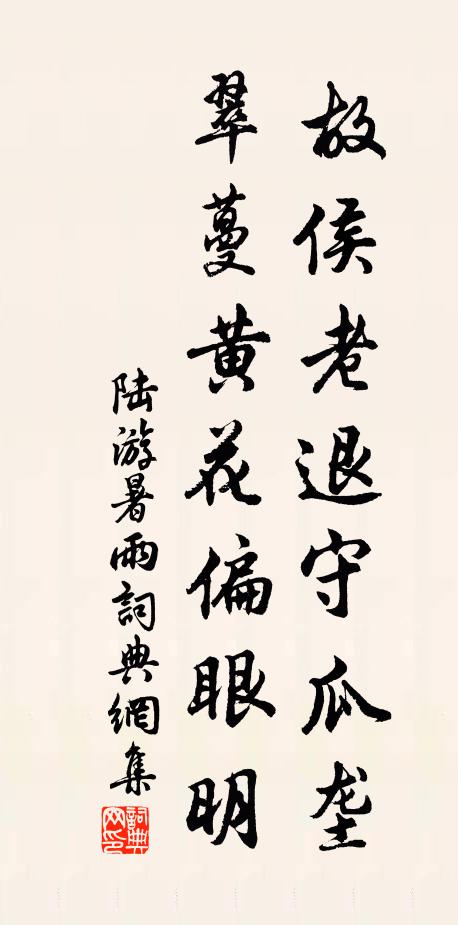 故侯老退守瓜垄
翠蔓黄花偏眼明
陆游暑雨詞典網集
詞典网印